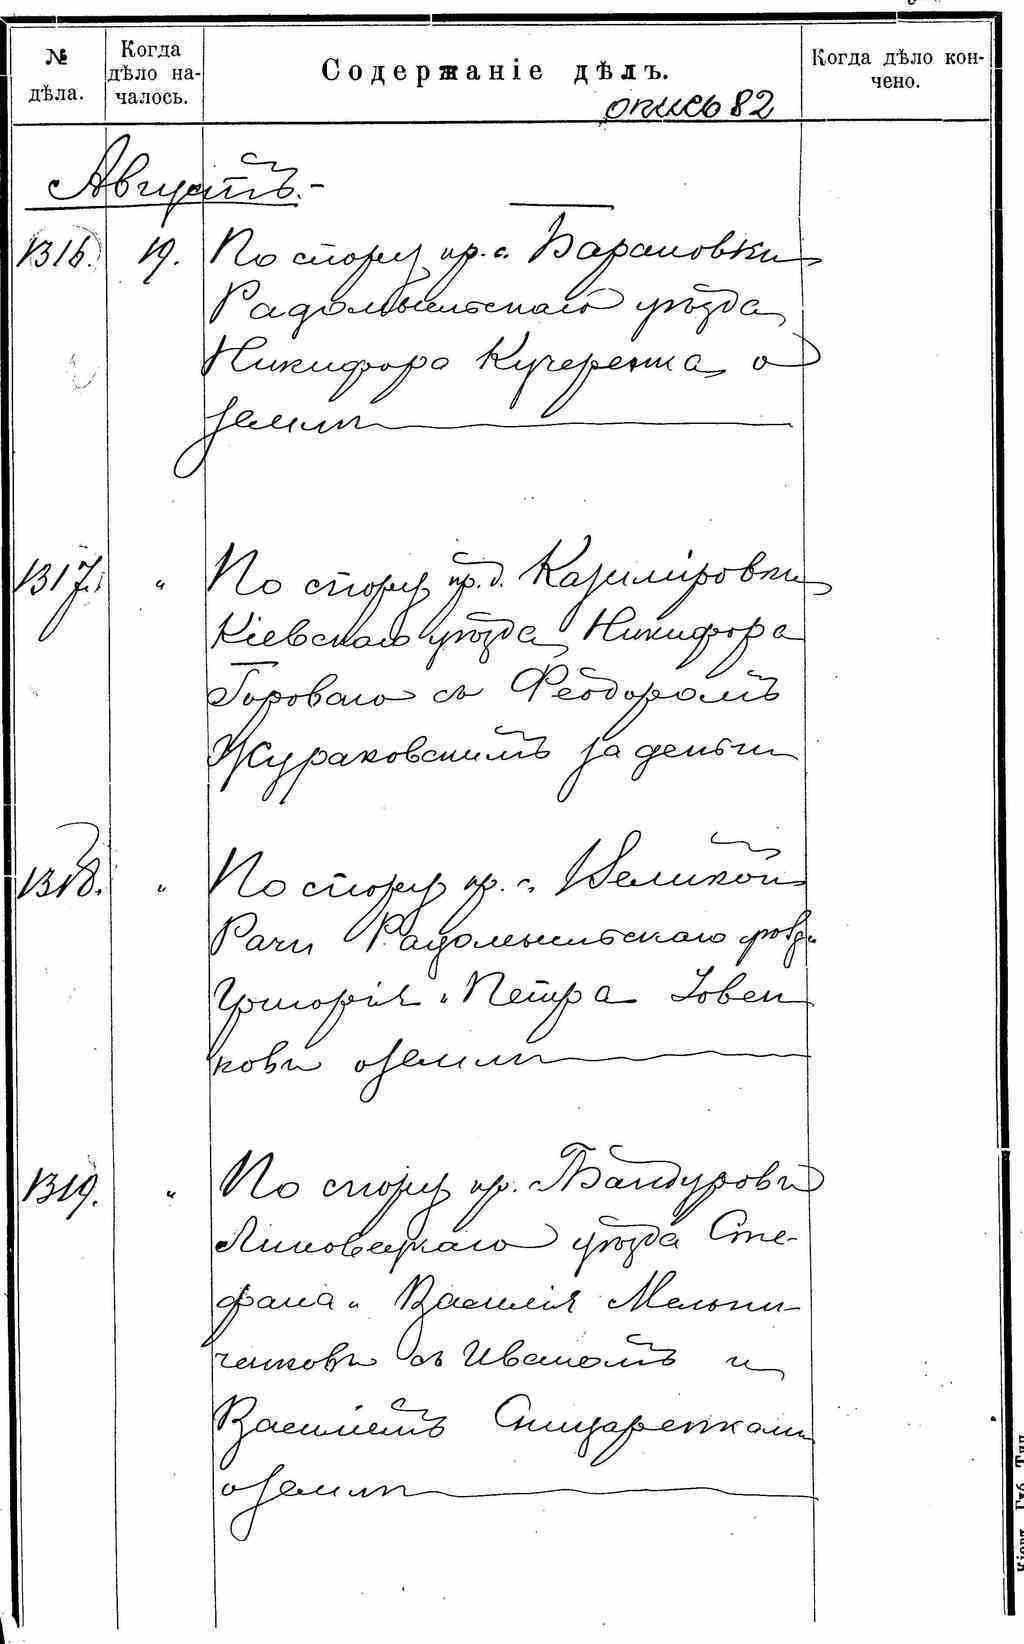 № дѣла.
Когда дѣло началось.
Содержаніе дѣлъ.
Когда дѣло кончено.
опись 82
Августъ.-
1316. 19. По спору кр. с. Барановки
Радомысльскаго уѣзда
Никифора Кучеренка о
землѣ
1317. " По спору кр. д. Казиміровки
Кіевскаго уѣзда Никифора
Гороваго съ Феодоромъ
Жураковскимъ за деньги
1318. " По спору кр. с. Великой
Рачи Радомысльскаго уѣзда
Григорія и Петра Іовен
ковъ о землѣ
1319. " По спору кр. Бандуровки
Липовецкаго уѣзда Сте-
фана и Василія Мельни-
ченковъ съ Иваномъ и
Василіемъ Сницаренками
о землѣ
Кіевъ. Губ. Тип.